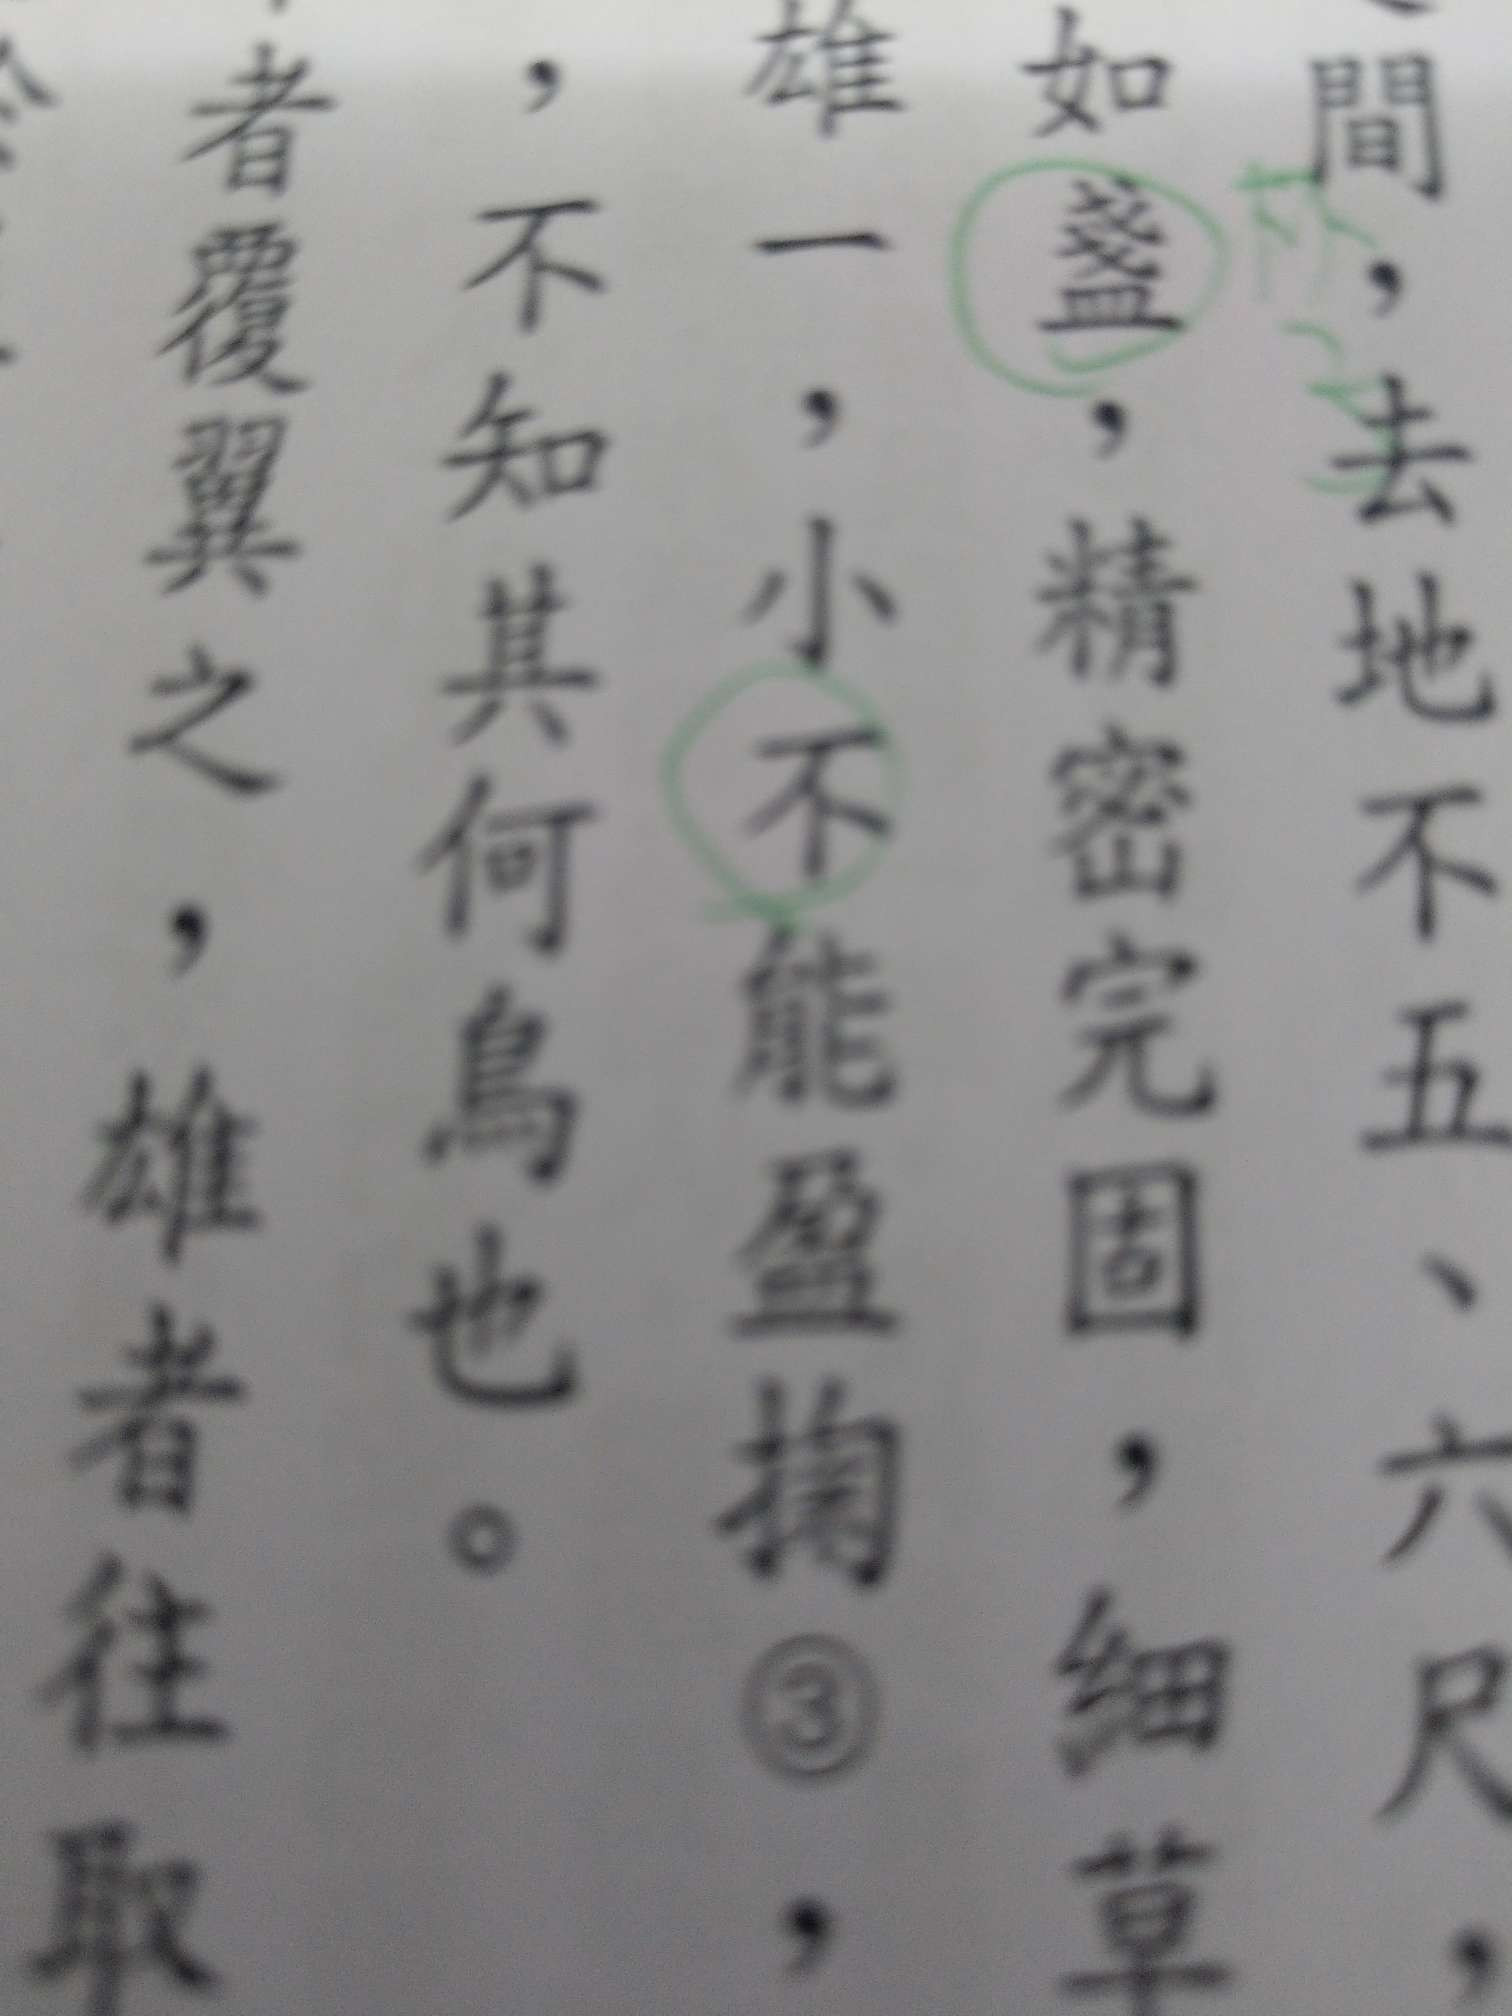 間，去地不五、六尺，
如盞，精密完固，細草
雄一，小不能盈掬③，
，不知其何鳥也。
者覆翼之，雄者往取
杯子